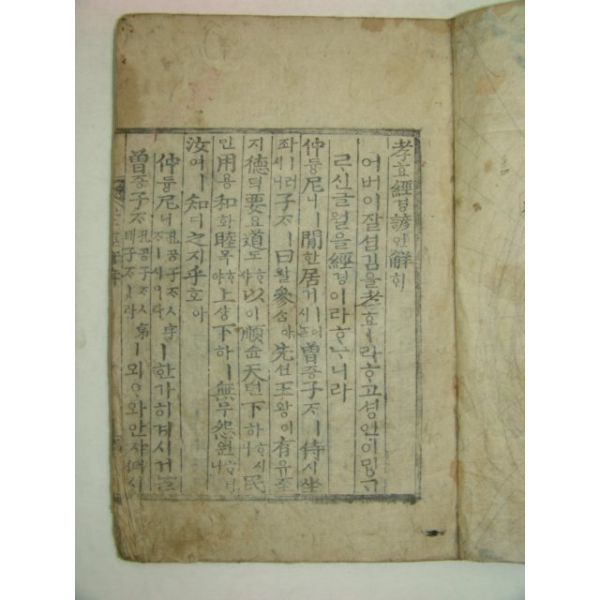 孝효經경諺언解ᄒᆡ
어버이잘셤김을孝효ㅣ라ᄒᆞ고셩인이밍
르신글월을經경이라ᄒᆞᄂᆞ니라
仲듕尼니ㅣ閒한居거ᄒᆞ시曾증子ᄌᆞㅣ侍시坐
좌ㅣ러시니子ᄌᆞㅣ曰왈參ᄉᆞᆷ아先션王왕이有유至
지德덕要요道도ᄒᆞ샤以이順슌天텬下하ᄒᆞ시니民
민用용和화睦목ᄒᆞ야上샹下하ㅣ無무怨원ᄒᆞ니
汝여ㅣ知디之지乎호아
仲듕尼니孔공子ᄌᆞㅅ字ᄌᆞㅣ시라ㅣ한가히겨시거
曾증子ᄌᆞ孔공子ᄌᆞㅅ弟뎨子ᄌᆞㅣ라ㅣ뫼ᄋᆞ와안